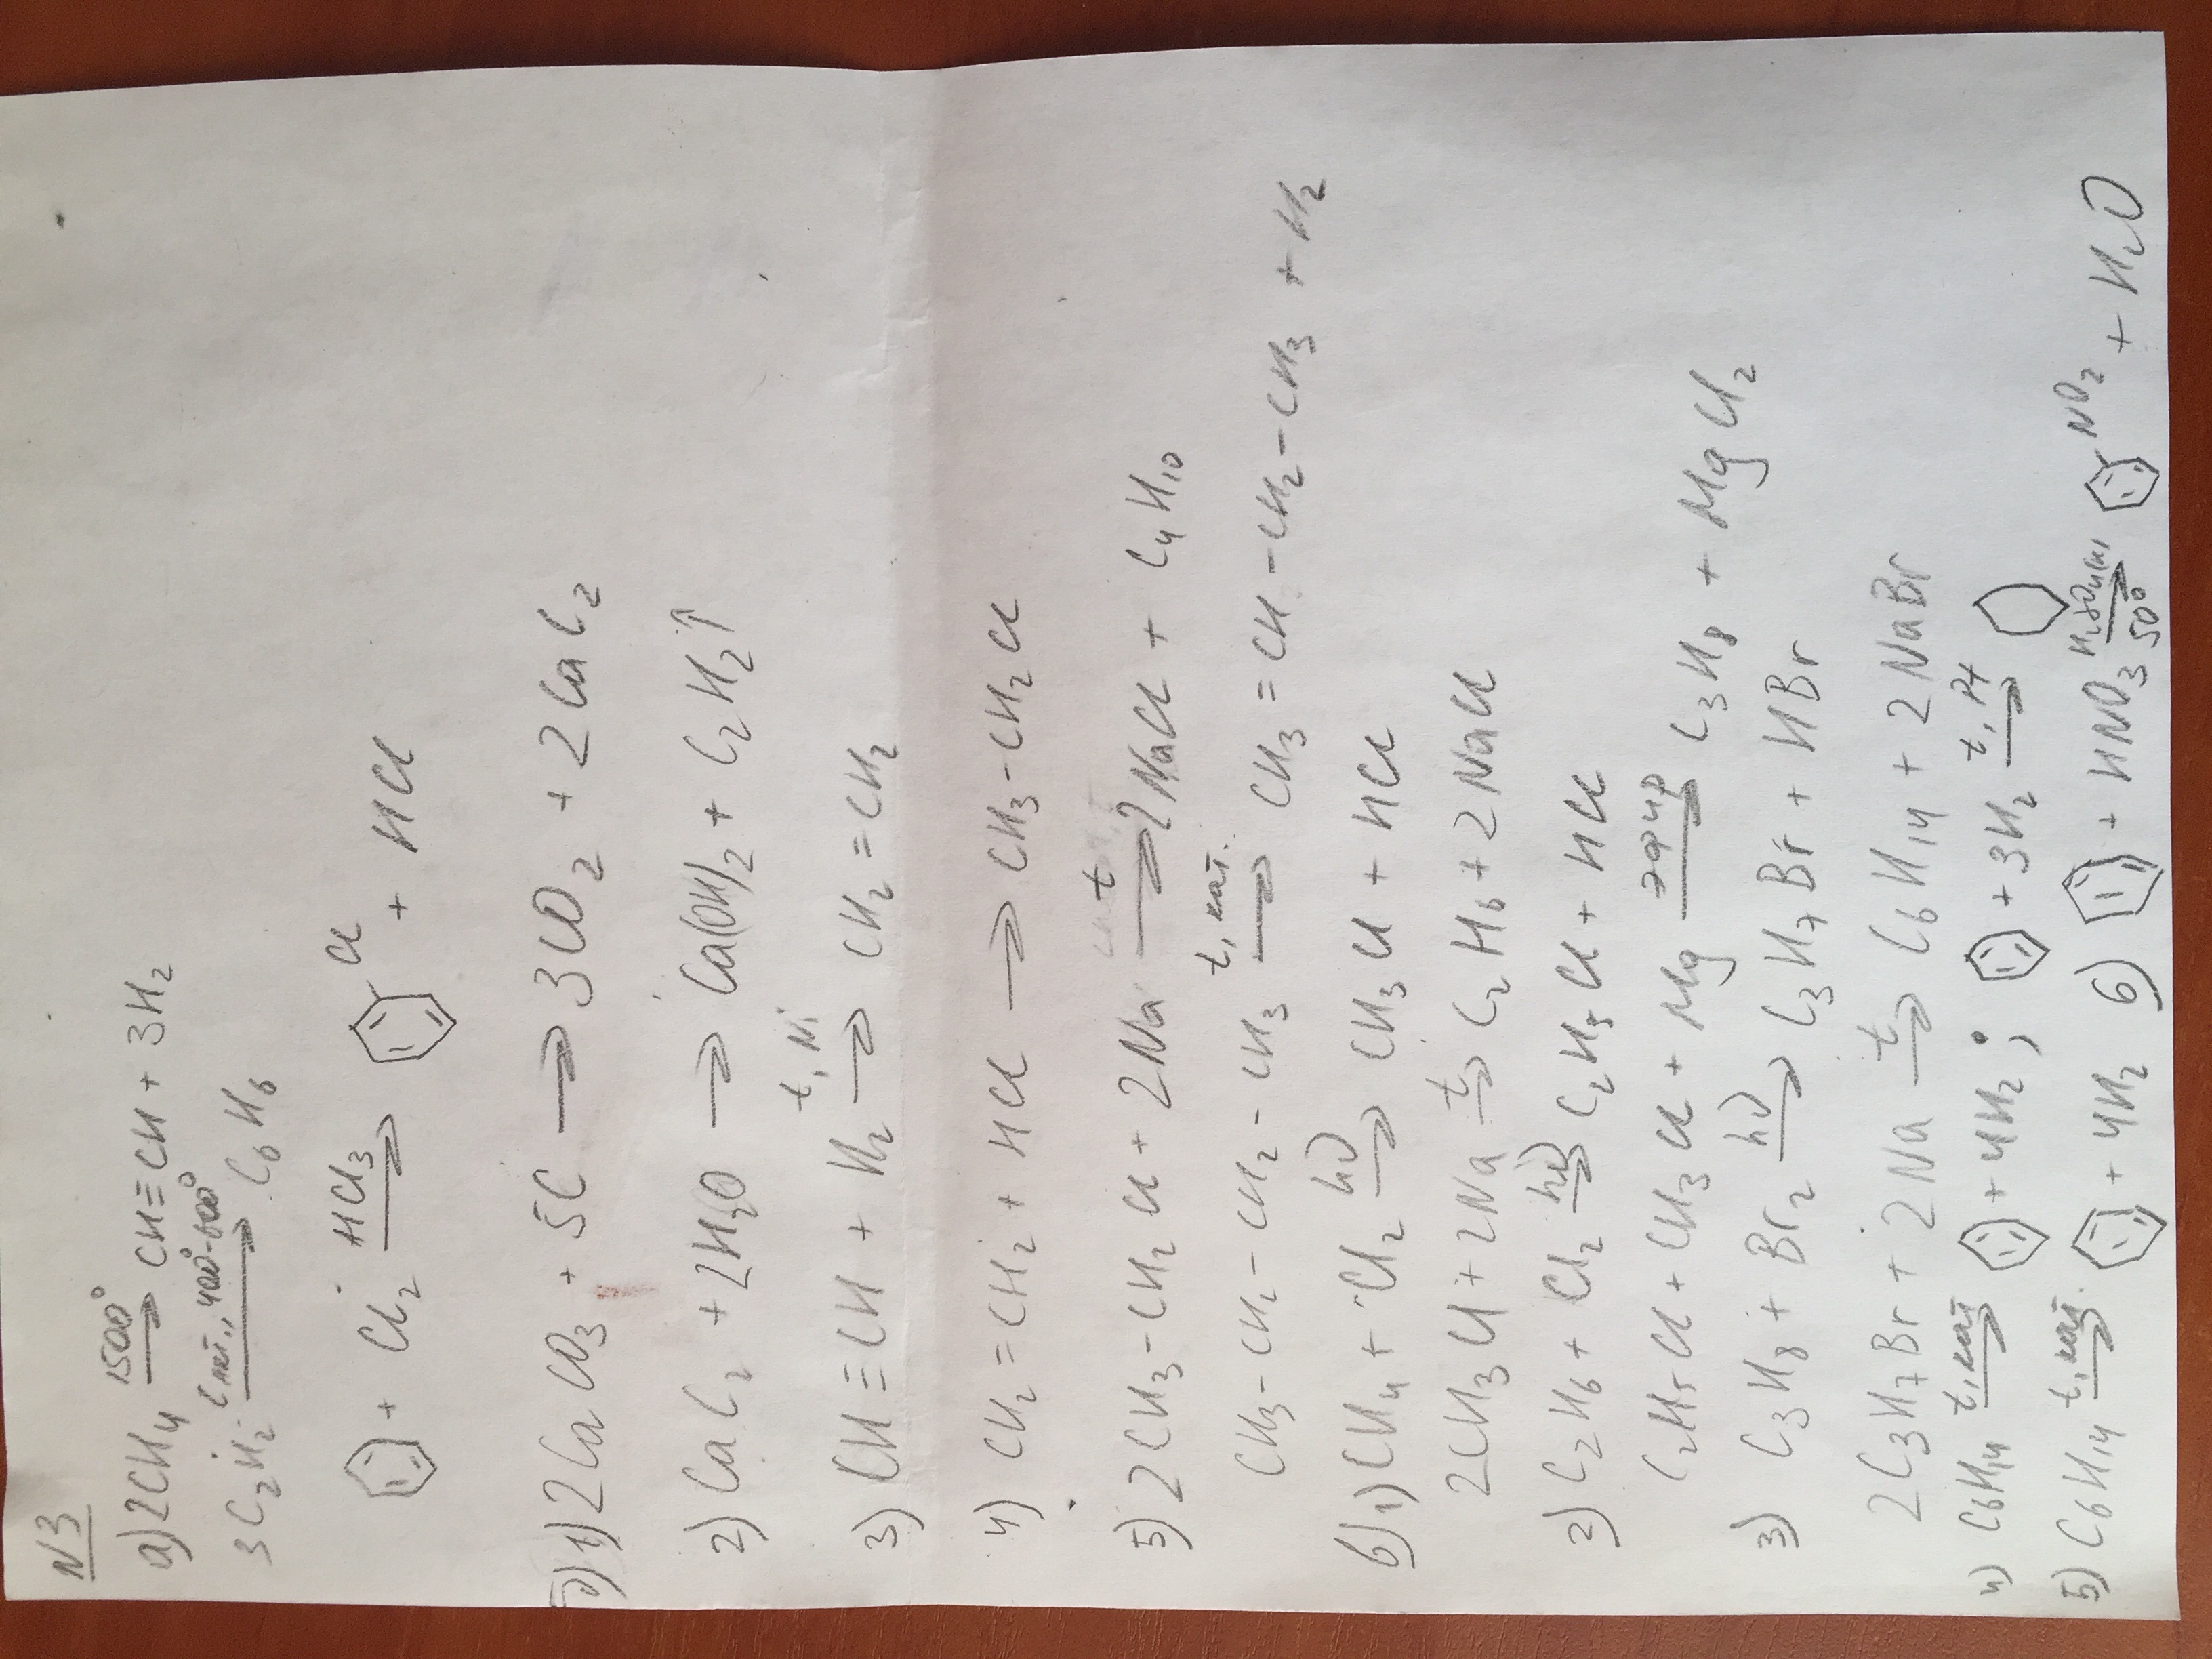 N3
а) 2CH₄ 1500° → CH≡CH + 3H₂
3C₂H₂ Cакт., 400°-600° → C₆H₆
+ Cl₂ HCl₃ → Cl + HCl
б) 1) 2CaCO₃ + 5C → 3CO₂ + 2CaC₂
2) CaC₂ + 2H₂O → Ca(OH)₂ + C₂H₂↑
3) CH≡CH + H₂ t, Ni → CH₂=CH₂
4) CH₂=CH₂ + HCl → CH₃-CH₂Cl
5) 2CH₃-CH₂Cl + 2Na t → 2NaCl + C₄H₁₀
CH₃-CH₂-CH₂-CH₃ t, кат. → CH₃=CH-CH₂-CH₃ + H₂
в) 1) CH₄ + Cl₂ hν → CH₃Cl + HCl
2CH₃Cl + 2Na t → C₂H₆ + 2NaCl
2) C₂H₆ + Cl₂ hν → C₂H₅Cl + HCl
C₂H₅Cl + CH₃Cl + Mg эфир → C₃H₈ + MgCl₂
3) C₃H₈ + Br₂ hν → C₃H₇Br + HBr
2C₃H₇Br + 2Na t → C₆H₁₄ + 2NaBr
4) C₆H₁₄ t, кат → + 4H₂; + 3H₂ t, Pt →
5) C₆H₁₄ t, кат. → + 4H₂ 6) + HNO₃ H₂SO₄(к) 50° → NO₂ + H₂O